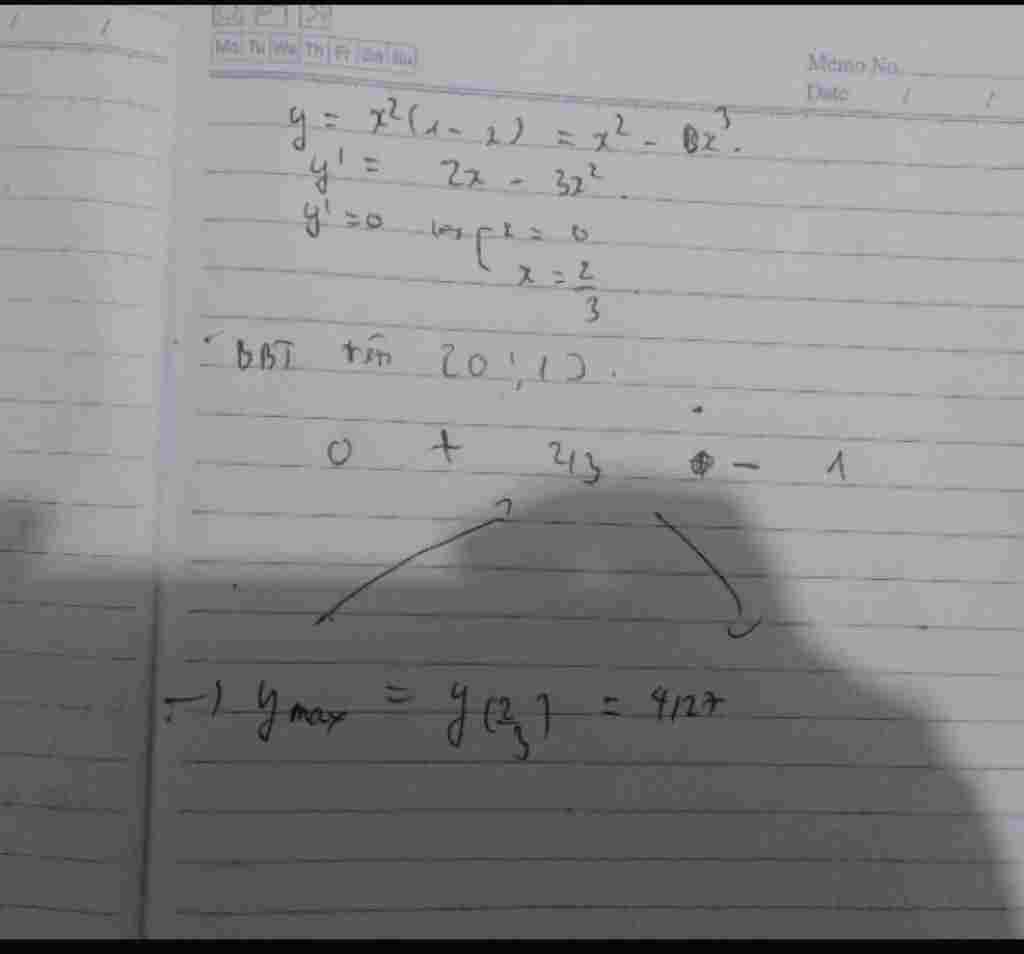 Mo Tu We Th Fr Sa Su
Memo No.
Date / /
y = x²(1 - x) = x² - x³.
y' = 2x - 3x².
y' = 0 [ x = 0
x = 2/3
BBT trên [0; 1].
0 + 2/3 - 1
→ y max = y(2/3) = 4/27